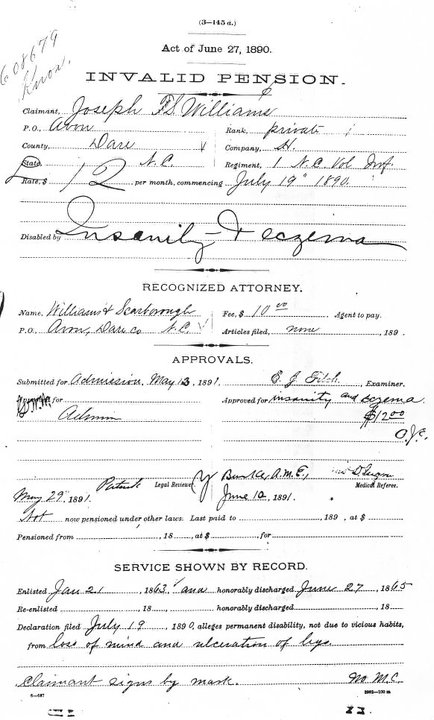 (3-145 a.)
Act of June 27, 1890.
608679
INVALID PENSION.
Claimant, Joseph Williams
P.O. Avon Rank, private
County, Dare Company, H.
State, N.C. Regiment, 1 N.C. Vol Inf
Rate, $ 12 per month, commencing July 19" 1890.
Disabled by Insanity & eczema
RECOGNIZED ATTORNEY.
Name, Williams & Scarborough Fee, $ 10 00 Agent to pay.
P.O. Avon, Dare co N.C. Articles filed, none , 189 .
APPROVALS.
Submitted for Admission, May 13, 1891. E. J. Examiner.
Approved for Admission Approved for insanity and eczema
$12.00
Legal Reviewer, A.M.C, Medical Referee.
May 29", 1891. June 12, 1891.
Not now pensioned under other laws. Last paid to , 189 , at $
Pensioned from , 18 , at $ for
SERVICE SHOWN BY RECORD.
Enlisted Jan 21, 1863, and honorably discharged June 27, 1865
Re-enlisted , 18 honorably discharged , 18
Declaration filed July 19, 1890, alleges permanent disability, not due to vicious habits,
from loss of mind and ulceration of legs.
Claimant signs by mark. M.M.C.